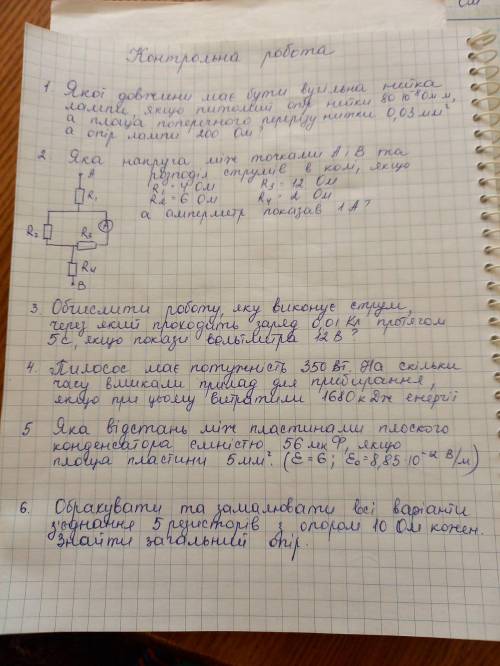 Контрольна робота
1 Якої довжини має бути вугільна нитка
лампи, якщо питомий опір нитки 80·10⁻⁸ Ом м,
а площа поперечного перерізу нитки 0,03 мм²
а опір лампи 200 Ом?
2 Яка напруга між точками А і В та
розподіл струмів в ком, якщо
R₁ = 4 Ом R₃ = 12 Ом
R₂ = 6 Ом R₄ = 2 Ом
а амперметр показав 1 А?
A
R₁
R₂
R₃
A
R₄
B
3. Обчислити роботу, яку виконує струм,
через який проходить заряд 0,01 Кл протягом
5 с, якщо покази вольтметра 12 В?
4. Пилосос має потужність 350 Вт. На скільки
часу вмикали прилад для прибирання,
якщо при цьому витратили 1680 кДж енергії
5 Яка відстань між пластинами плоского
конденсатора ємністю 56 мкФ, якщо
площа пластини 5 мм². (ε = 6; ε₀ = 8,85·10⁻¹² В/м)
6. Обрахувати та замалювати всі варіанти
з'єднання 5 резисторів з опором 10 Ом кожен.
Знайти загальний опір.